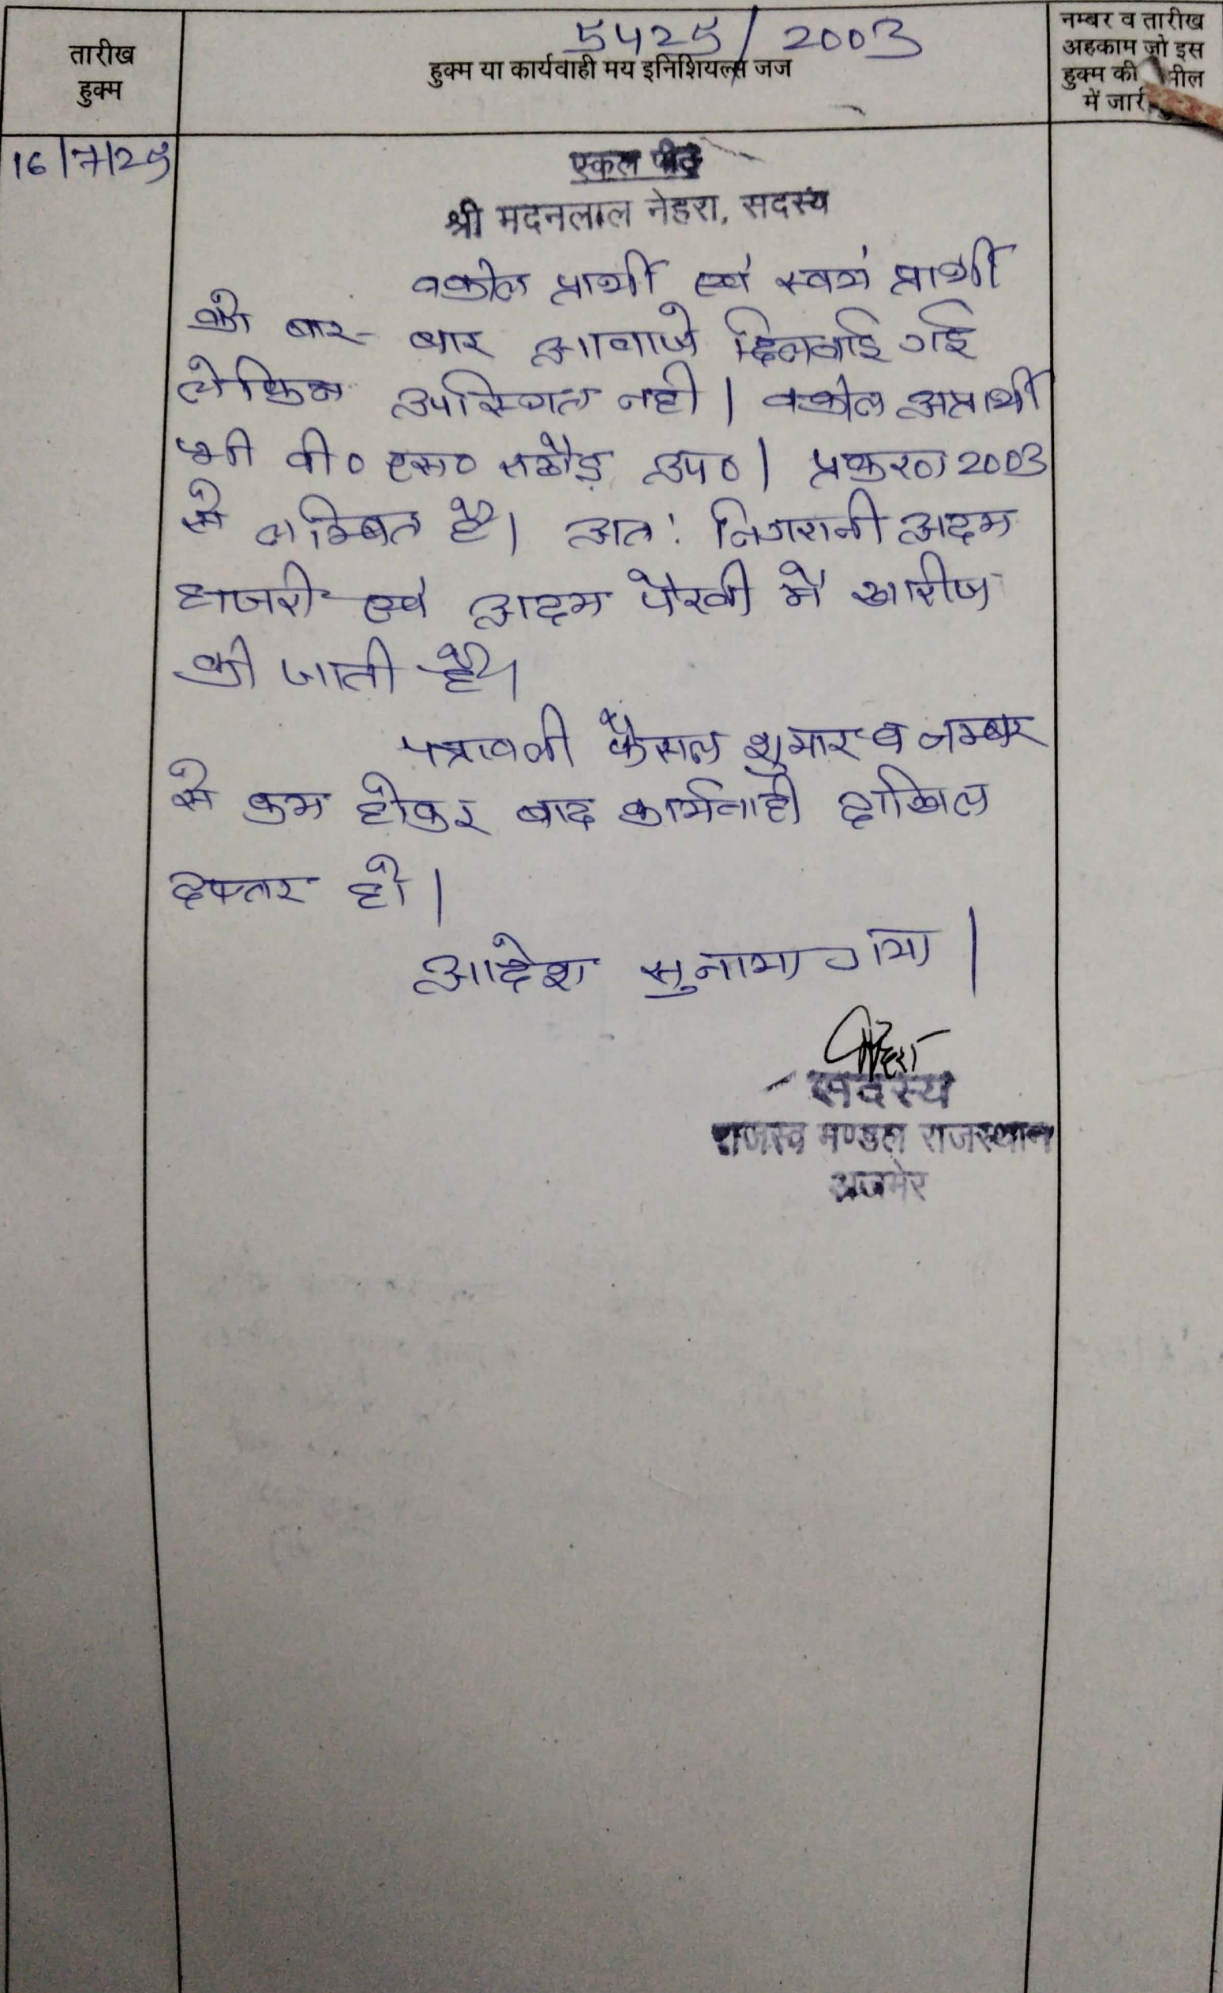 5425/2003
तारीख
हुक्म
हुक्म या कार्यवाही मय इनिशियल्स जज
नम्बर व तारीख
अहकाम जो इस
हुक्म की मील
में जारी
16/7/25
एकल पीठ
श्री मदनलाल नेहरा, सदस्य
वकील प्रार्थी एवं स्वयं प्रार्थी
को बार-बार आवाजे दिलवाई गई
लेकिन उपस्थित नही। वकील अप्रार्थी
श्री वी० एस० राठौड़ उप०। प्रकरण 2003
से लम्बित है। अतः निगरानी अदम
हाजरी एवं अदम पैरवी में खारीज
की जाती है।
पत्रावली फैसल शुमार व नम्बर
से कम होकर बाद कार्यवाही दाखिल
दफ्तर हो।
आदेश सुनाया गया।
सदस्य
राजस्व मण्डल राजस्थान
अजमेर